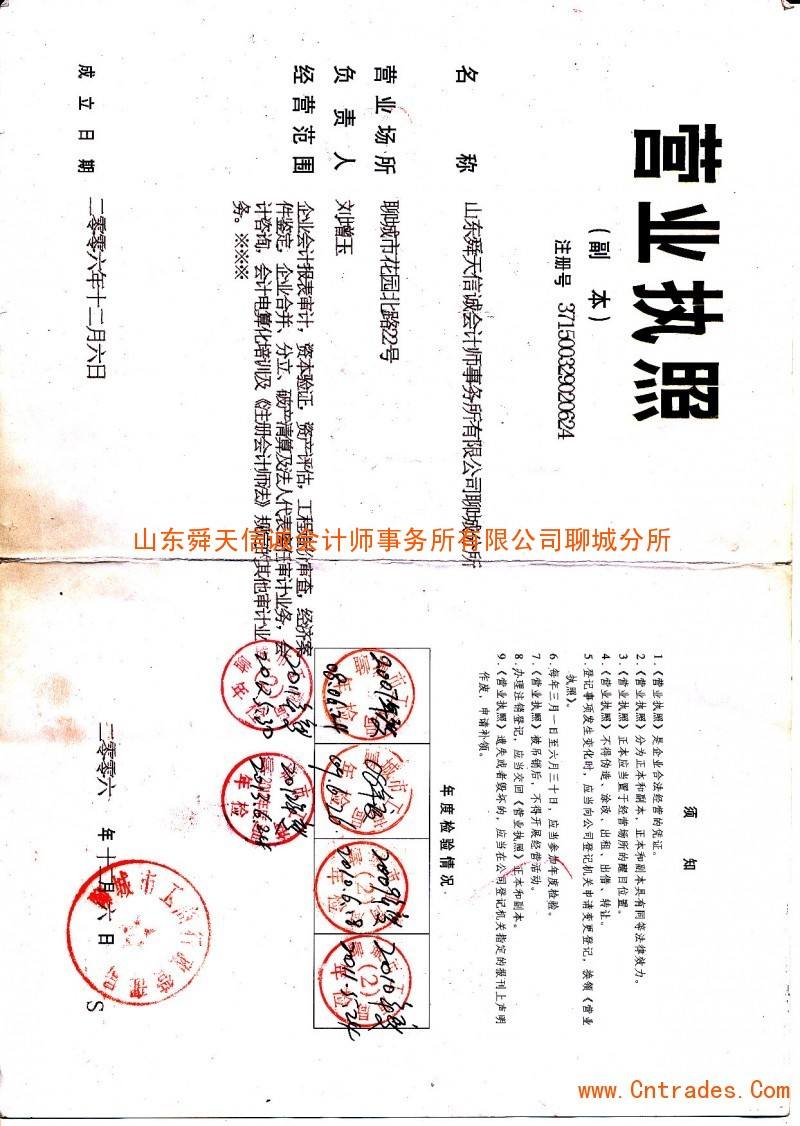 营业执照
(副本)
注册号 371500329020624
名称 山东舜天信诚会计师事务所有限公司聊城分所
营业场所 聊城市花园北路22号
负责人 刘增玉
经营范围 企业会计报表审计，资本验证，资产评估，工程预决算审查，经济案
件鉴定，企业合并、分立、破产清算及法人代表离任审计业务，会
计咨询，会计电算化培训及《注册会计师法》规定的其他审计业
务。※※※
成立日期 二零零六年十二月六日
山东舜天信诚会计师事务所有限公司聊城分所
须知
1.《营业执照》是企业合法经营的凭证。
2.《营业执照》分为正本和副本，正本和副本具有同等法律效力。
3.《营业执照》正本应当置于经营场所的醒目位置。
4.《营业执照》不得伪造、涂改、出租、出借、转让。
5.登记事项发生变化时，应当向公司登记机关申请变更登记，换领《营业
执照》。
6.每年三月一日至六月三十日，应当参加年度检验。
7.《营业执照》被吊销后，不得开展经营活动。
8.办理注销登记，应当交回《营业执照》正本和副本。
9.《营业执照》遗失或者毁坏的，应当在公司登记机关指定的报刊上声明
作废，申请补领。
年度检验情况
2010.6.8
2011.5.24
2012.5.30
二零零六年十二月六日
S
www.Cntrades.Com